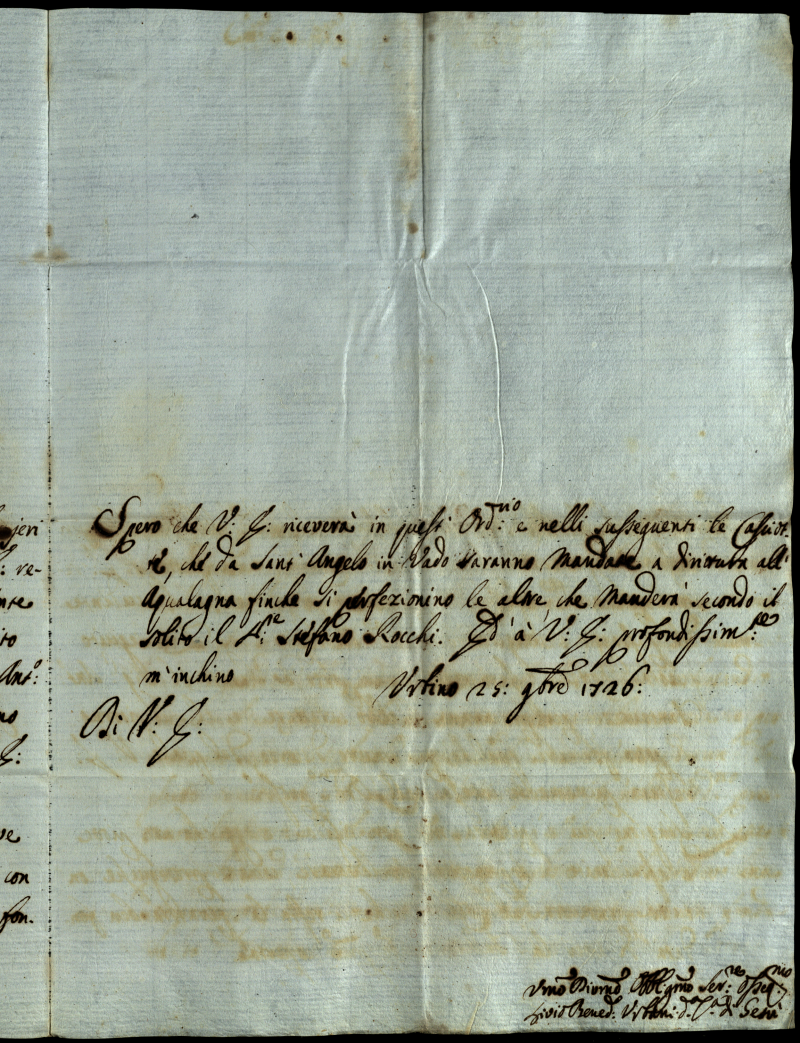 jeri
: re-
nte
ito
Ant.º
no
E:
ve
con
fon-
Spero che V: E: riceverà in questi Ord:rio e nelli susseguenti le Casciot-
te, che da Sant' Angelo in Vado saranno Mandate a dirittura all'
Aqualagna finche si perfezionino le altre, che Manderà secondo il
solito il S:re Stefano Rocchi. Ed à V: E: profondissim:te
m'inchino
Urbino 25: 9bre 1726:
Di V: E:
Umo Divmo Obblgmo Ser:re osseq:mo
Livio Bened: Urbani